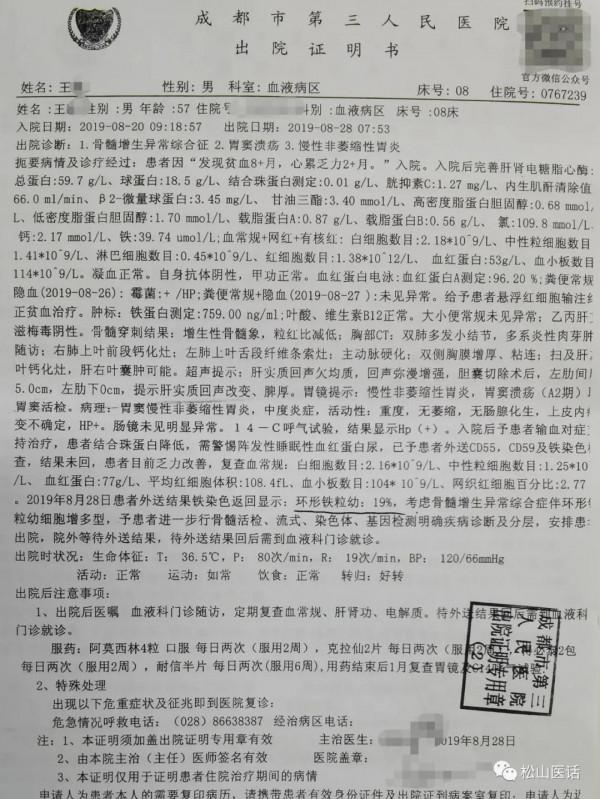 成都市第三人民医院
扫码预约挂号
出院证明书
官方微信公众号
姓名:王 性别:男 科室:血液病区 床号:08 住院号:0767239
姓名:王 性别:男 年龄:57 住院号 科别:血液病区 床号:08床
入院日期:2019-08-20 09:18:57 出院日期:2019-08-28 07:53
出院诊断:1.骨髓增生异常综合征 2.胃窦溃疡 3.慢性非萎缩性胃炎
扼要病情及诊疗经过:患者因“发现贫血8+月,心累乏力2+月。”入院。入院后完善肝肾电糖脂心酶:
总蛋白:59.7 g/L、球蛋白:18.5 g/L、结合珠蛋白测定:0.01 g/L、胱抑素C:1.27 mg/L、内生肌酐清除值
66.0 ml/min、β2-微量球蛋白:3.45 mg/L、甘油三酯:3.40 mmol/L、高密度脂蛋白胆固醇:0.68 mmol/
L、低密度脂蛋白胆固醇:1.70 mmol/L、载脂蛋白A:0.87 g/L、载脂蛋白B:0.56 g/L、氯:109.8 mmol/L
钙:2.17 mmol/L、铁:39.74 umol/L;血常规+网红+有核红:白细胞数目:2.18*10^9/L、中性粒细胞数目
1.41*10^9/L、淋巴细胞数目:0.45*10^9/L、红细胞数目:1.38*10^12/L、血红蛋白:53g/L、血小板数目
114*10^9/L。凝血正常。自身抗体阴性,甲功正常。血红蛋白电泳:血红蛋白A测定:96.20 %;粪便常规
隐血(2019-08-26):霉菌:+ /HP;粪便常规+隐血(2019-08-27):未见异常。给予患者悬浮红细胞输注纠
正贫血治疗。肿标:铁蛋白测定:759.00 ng/ml;叶酸、维生素B12正常。大小便常规未见异常;乙丙肝艾
滋梅毒阴性。骨髓穿刺结果:增生性骨髓象,粒红比减低;胸部CT:双肺多发小结节,多系炎性肉芽肿
随访;右肺上叶前段钙化灶;左肺上叶舌段纤维条索灶;主动脉硬化;双侧胸膜增厚、粘连;扫及肝
叶钙化灶,肝右叶囊肿可能。超声提示:肝实质回声欠均质,回声弥漫增强,胆囊切除术后,左肋间厚
5.0cm,左肋下0cm,提示肝实质回声改变、脾厚。胃镜提示:慢性非萎缩性胃炎,胃窦溃疡(A2期)
胃窦活检。病理:-胃窦慢性非萎缩性胃炎,中度炎症,活动性:重度,无萎缩,无肠腺化生,上皮内
变不确定,HP+。肠镜未见明显异常。14-C呼气试验,结果显示Hp(+)。入院后予患者输血对症
持治疗,患者结合珠蛋白降低,需警惕阵发性睡眠性血红蛋白尿,已予患者外送CD55,CD59及铁染色检
查,结果未回,患者目前乏力改善,复查血常规:白细胞数目:2.16*10^9/L、中性粒细胞数目:1.25*10
/L、血红蛋白:77g/L,平均红细胞体积:108.4fL、血小板数目:104* 10^9/L、网织红细胞百分比:2.77
。2019年8月28日患者外送结果铁染色返回显示:环形铁粒幼:19%,考虑骨髓增生异常综合症伴环形铁
粒幼细胞增多型,予患者进一步行骨髓活检、流式、染色体、基因检测明确疾病诊断及分层,安排患
出院,院外等待外送结果,待外送结果回后需到血液科门诊就诊。
出院时状况:生命体征:T: 36.5℃, P: 80次/min, R: 19次/min, BP: 120/66mmHg
活动:正常 运动:如常 饮食:正常 转归:好转
出院后注意事项:
1、出院后医嘱 血液科门诊随访,定期复查血常规、肝肾功、电解质。待外送结果回后需到血液科
门诊就诊。
服药:阿莫西林4粒 口服 每日两次(服用2周),克拉仙2片 每日两次(服用2周) 2包
每日两次(服用2周),耐信半片 每日两次(服用6周),用药结束后1月复查胃镜及
2、特殊处理
出现以下危重症状及征兆即到医院复诊:
危急情况呼救电话:(028)86638387 经治病区电话:
注:1、本证明须加盖出院证明专用章有效 主治医生: 2019年8月28日
2、由本院主治(主任)医师签名有效 医院盖章:
3、本证明仅用于证明患者住院治疗期间的病情
申请人为患者本人的需要复印病历,请携带患者有效身份证件及出院证到病案室复印;申请人为
成都市第三
人民医院
出院证明专用章
松山医话